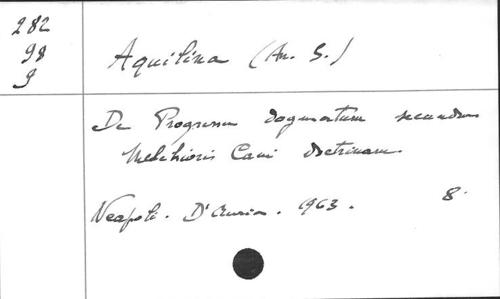 282
98
9
Aquilina (An. S.)
De Progressu dogmatum secundum
Melchioris Cani doctrinam.
Neapoli. D'Auria. 1963. 8.